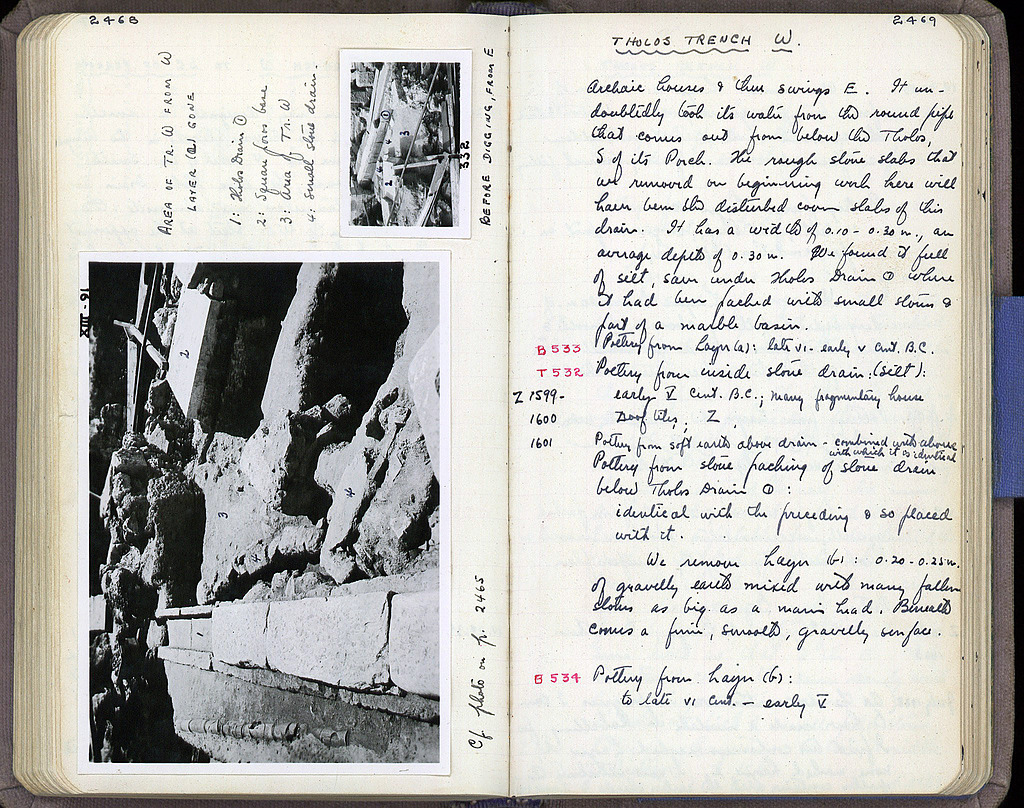 2468
AREA OF TR. W FROM W
LAYER (a) GONE
1: Tholos Drain ①
2: Square poros base
3: Area of Tr. W
4: Small stone drain
1
3
4
2
332
BEFORE DIGGING, FROM E
XIII-91
2
4
3
4
1
Cf photo on p. 2465
2469
THOLOS TRENCH W.
Archaic houses & then swings E. It un-
doubtedly took its water from the round pipe
that comes out from below the Tholos,
S of its Porch. The rough stone slabs that
we removed on beginning work here will
have been the disturbed cover slabs of this
drain. It has a width of 0.10 - 0.30 m., an
average depth of 0.30 m. We found it full
of silt, save under Tholos Drain ① where
it had been packed with small stones &
part of a marble basin.
B 533 Pottery from Layer (a): late VI - early V cent. B.C.
T 532 Poetery from inside stone drain: (silt):
Z 1599- early V Cent. B.C.; many fragmentary house
1600 roof tiles; Z
1601 Pottery from soft earth above drain - combined with above,
with which it is identical
Pottery from stone packing of stone drain
below Tholos Drain ① :
identical with the preceding & so placed
with it.
We remove Layer (b) : 0.20 - 0.25 m.
of gravelly earth mixed with many fallen
stones as big as a man's head. Beneath
comes a firm, smooth, gravelly surface.
B 534 Pottery from Layer (b):
to late VI cent. - early V